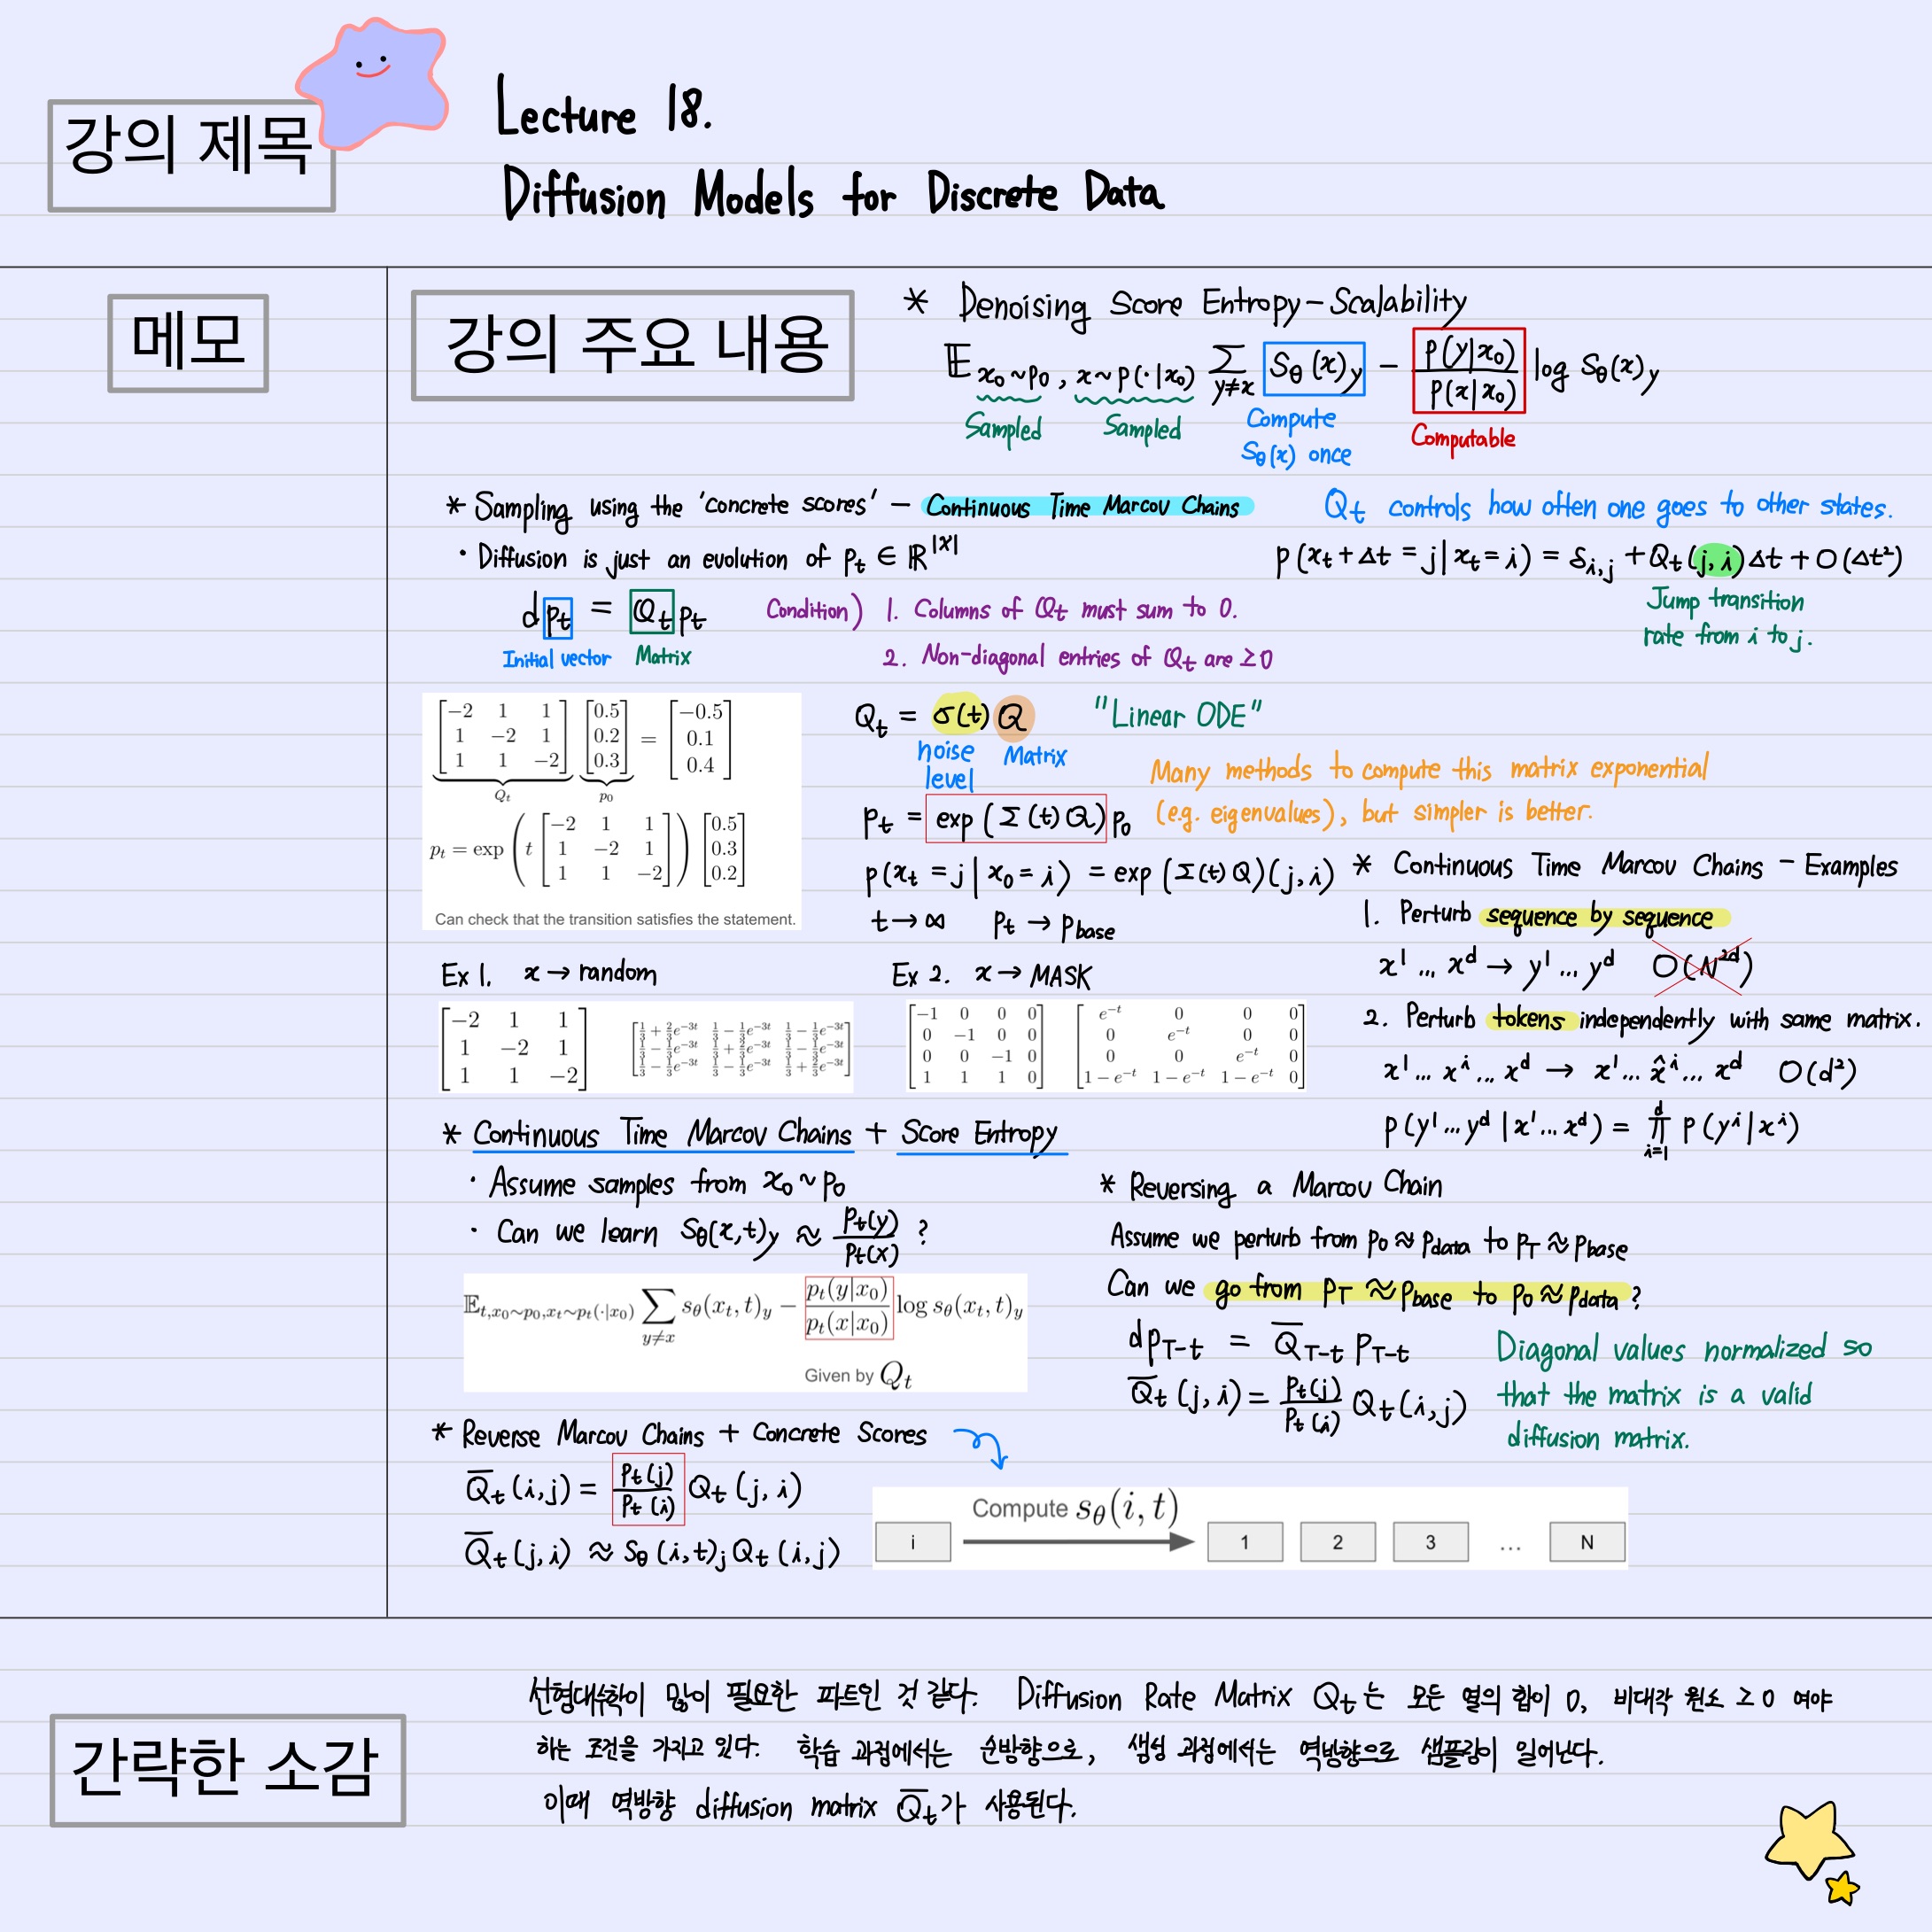 강의 제목
Lecture 18.
Diffusion Models for Discrete Data
메모
강의 주요 내용
* Denoising Score Entropy - Scalability
𝔼 x₀~p₀, x~p(·|x₀) Σ_{y≠x} S_θ(x)_y − p(y|x₀)/p(x|x₀) log S_θ(x)_y
Sampled Sampled Compute S_θ(x) once Computable
* Sampling using the 'concrete scores' - Continuous Time Marcov Chains
· Diffusion is just an evolution of p_t ∈ ℝ^|X|
dp_t = Q_t p_t
Initial vector Matrix
Condition) 1. Columns of Q_t must sum to 0.
2. Non-diagonal entries of Q_t are ≥ 0
Q_t controls how often one goes to other states.
p(x_t+Δt = j | x_t = i) = S_{i,j} + Q_t(j,i)Δt + O(Δt²)
Jump transition
rate from i to j.
[−2 1 1; 1 −2 1; 1 1 −2] [0.5; 0.2; 0.3] = [−0.5; 0.1; 0.4]
Q_t p₀
p_t = exp(t [−2 1 1; 1 −2 1; 1 1 −2]) [0.5; 0.3; 0.2]
Can check that the transition satisfies the statement.
Q_t = σ(t) Q "Linear ODE"
noise level Matrix
p_t = exp(Σ(t)Q) p₀
Many methods to compute this matrix exponential
(e.g. eigenvalues), but simpler is better.
p(x_t = j | x₀ = i) = exp(Σ(t)Q)(j,i)
t → ∞ p_t → p_base
* Continuous Time Marcov Chains - Examples
1. Perturb sequence by sequence
x¹ ... x^d → y¹ ... y^d O(N^{2d})
2. Perturb tokens independently with same matrix.
x¹ ... x^i ... x^d → x¹ ... x̂^i ... x^d O(d²)
p(y¹...y^d | x¹...x^d) = ∏_{i=1}^{d} p(y^i | x^i)
Ex 1. x → random
[−2 1 1; 1 −2 1; 1 1 −2] [1/3+2/3e^{−3t} 1/3−1/3e^{−3t} 1/3−1/3e^{−3t}; 1/3−1/3e^{−3t} 1/3+2/3e^{−3t} 1/3−1/3e^{−3t}; 1/3−1/3e^{−3t} 1/3−1/3e^{−3t} 1/3+2/3e^{−3t}]
Ex 2. x → MASK
[−1 0 0 0; 0 −1 0 0; 0 0 −1 0; 1 1 1 0] [e^{−t} 0 0 0; 0 e^{−t} 0 0; 0 0 e^{−t} 0; 1−e^{−t} 1−e^{−t} 1−e^{−t} 0]
* Continuous Time Marcov Chains + Score Entropy
· Assume samples from x₀ ~ p₀
· Can we learn S_θ(x,t)_y ≈ p_t(y)/p_t(x) ?
𝔼_{t,x₀~p₀,x_t~p_t(·|x₀)} Σ_{y≠x} s_θ(x_t, t)_y − p_t(y|x₀)/p_t(x|x₀) log s_θ(x_t, t)_y
Given by Q_t
* Reversing a Marcov Chain
Assume we perturb from p₀ ≈ p_data to p_T ≈ p_base
Can we go from p_T ≈ p_base to p₀ ≈ p_data ?
dp_{T−t} = Q̄_{T−t} p_{T−t}
Q̄_t(j,i) = p_t(j)/p_t(i) Q_t(i,j)
Diagonal values normalized so
that the matrix is a valid
diffusion matrix.
* Reverse Marcov Chains + Concrete Scores
Q̄_t(i,j) = p_t(j)/p_t(i) Q_t(j,i)
Q̄_t(j,i) ≈ S_θ(i,t)_j Q_t(i,j)
Compute s_θ(i, t)
i 1 2 3 ... N
간략한 소감
선형대수학이 많이 필요한 파트인 것 같다. Diffusion Rate Matrix Q_t는 모든 열의 합이 0, 비대각 원소 ≥ 0 여야
하는 조건을 가지고 있다. 학습 과정에서는 순방향으로, 생성 과정에서는 역방향으로 샘플링이 일어난다.
이때 역방향 diffusion matrix Q̄_t가 사용된다.